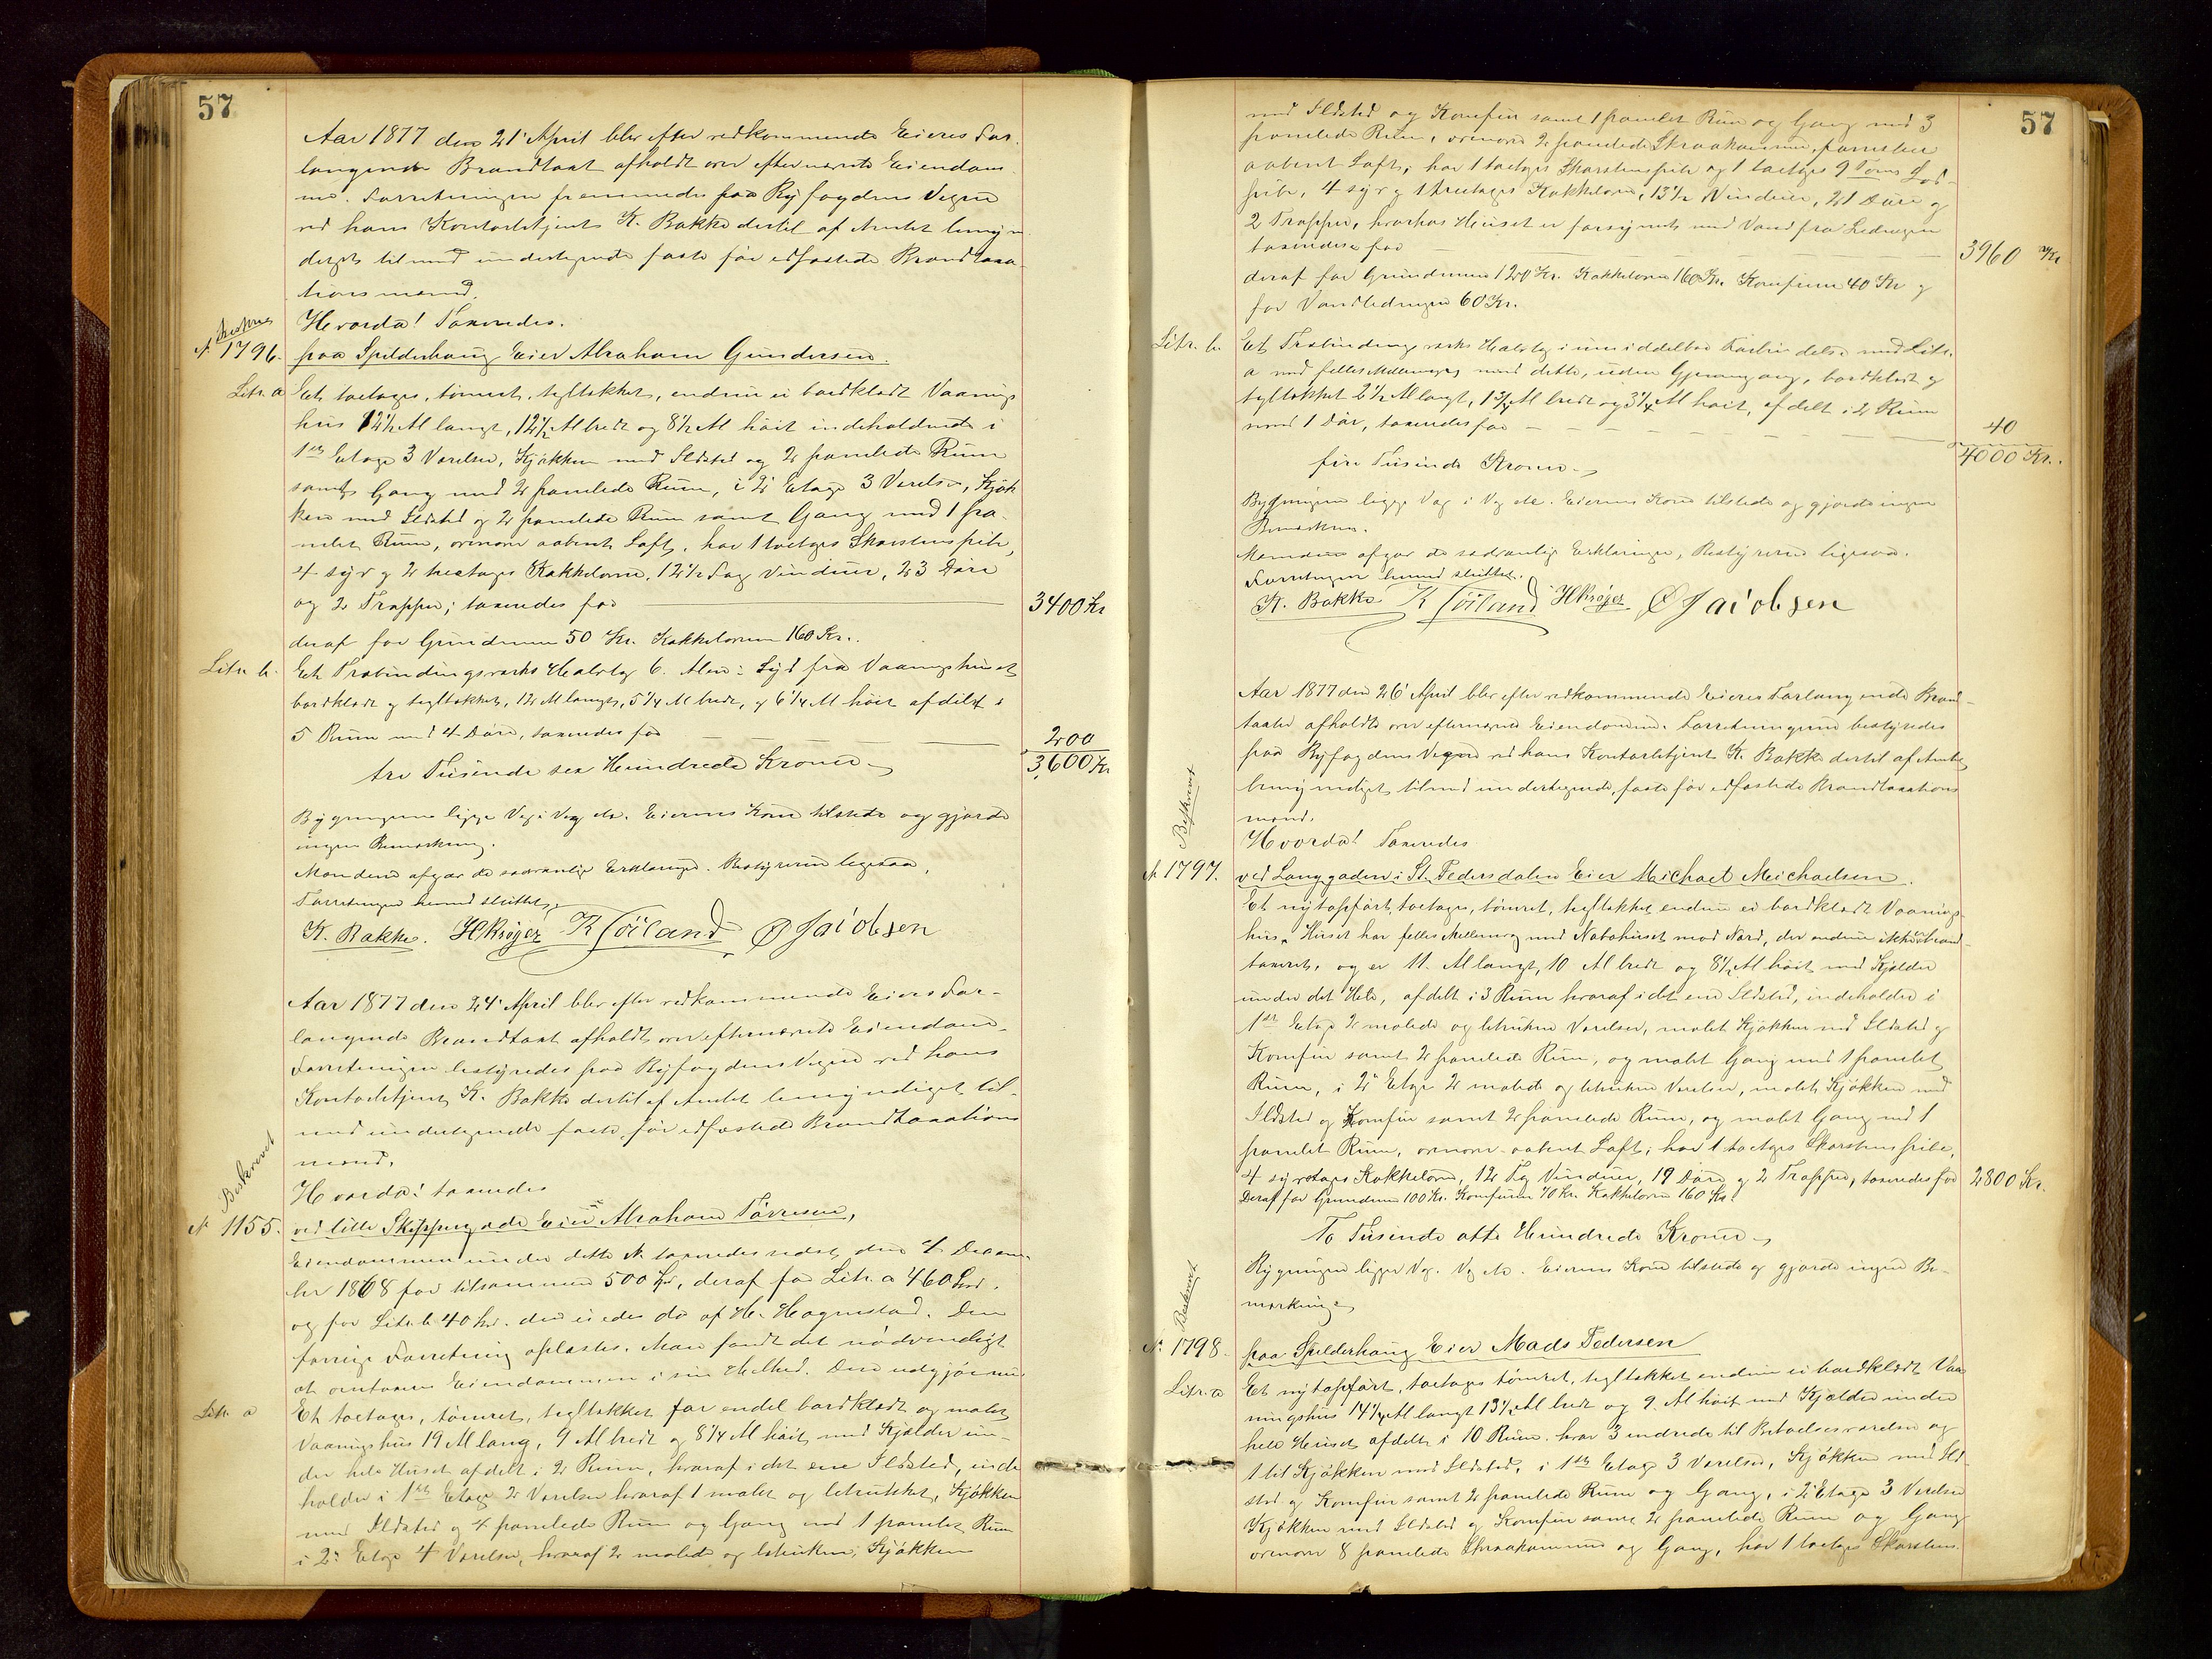 57
Aar 1877 den 21' April blev efter vedkommende Eieres For-
langende Brandtaxt afholdt over efternævnte Eiendom-
me. Forretningen fremmedes paa Byfogdens Vegne
ved hans Kontorbetjent K. Bakke dertil af Amtet bemyn
diget tilmed undertegnede faste før edfæstede Brandtaxa-
tionsmænd.
Hvorda! Taxeredes.
N. 1796. paa Spilderhaug Eier Abraham Gundersen.
Litr. a Et toetages, tømret, tegltækket, endnu ei bordklædt Vaanings
hus 12½ Al langt, 12½ Al bredt og 8½ Al høit indeholdende i
1ste Etage 3 Værelser, Kjøkken med Ildsted og 2 panelede Rum
samt Gang med 2 panelede Rum, i 2' Etage 3 Værelser, Kjøk
ken med Ildsted og 2 panelede Rum samt Gang med 1 pa-
nelet Rum, ovenover aabent Loft, har 1 toetages Skorstenspibe,
4 syv og 2 treetages Kakkelovne, 12½ Fag Vinduer, 23 Døre
og 2 Trapper; taxeredes for 3400 Kr
deraf for Grundmuren 50 Kr. Kakkelovnen 160 Kr.
Litr. b. Et Træbindingsværks Halvtag 6 Alen i Syd fra Vaaningshuset
bordklædt og tegltækket, 12 Al langt, 5¼ Al bredt, og 6¼ Al høit afdelt i
5 Rum med 4 Døre, taxeredes for 200
tre Tusinde sex Hundrede Kroner 3600 Kr
Bygningerne ligge Veg i Veg etc. Eieren Kom tilstede og gjorde
ingen Bemærkning.
Mændene afgav de sædvanlige Erklæringer. Bestyreren ligesaa,
Forretningen hermed sluttet.
K. Bakke. H Krøger K Töiland Ø Jacobsen
Aar 1877 den 24' April blev efter vedkommende Eiers For-
langende Brandtaxt afholdt over efternævnte Eiendom.
Forretningen bestyredes paa Byfogdens Vegne ved hans
Kontorbetjent K. Bakke dertil af Amtet bemyndiget til-
med undertegnede faste før edfæstede Brandtaxations
mænd.
Hvorda! taxeredes
Beskrevet
N 1155. ved lille Skippergade Eier Abraham Tørresen,
Eiendommen under dette N. taxeredes sidst den 4 Decem-
ber 1868 for tilsammen 500 Spd, deraf for Litr. a 460 Spd.
og for Litr. b 40 Spd. den eiedes da af H. Hagmestad. Den
forrige Forretning oplæstes. Man fandt det nødvendigt
at omtaxere Eiendommen i sin Helhed. Den udgjør nu
Litr. a Et toetages, tømret, tegltækket for endel bordklædt og malet
Vaaningshus 19 Al lang, 9 Al bredt og 8¼ Al høit, med Kjælder un-
der hele Huset afdelt i 2 Rum, hvoraf i det ene Ildsted, inde
holder i 1ste Etage 2 Værelser hvoraf 1 malet og betrukket, Kjøkken
med Ildsted og 4 panelede Rum og Gang med 1 panelet Rum
i 2' Etage 4 Værelser, hvoraf 2 malede og betrukne, Kjøkken
57
med Ildsted og Komfur samt 1 panelet Rum og Gang med 3
panelede Rum, ovenover 2 panelede Skraakamre, forresten
aabent Loft; har 1 toetages Skorstenspibe og 1 toetages 9 Toms
pibe, 4 syv og 1 treetages Kakkelovne, 13½ Vinduer, 21 Døre og
2 Trapper, hvorhos Huset er forsynet med Vand fra Ledningen
taxeredes for 3960 Kr
deraf for Grundmuren 120 Kr. Kakkelovne 160 Kr. Komfurer 40 Kr og
for Vandledningen 60 Kr.
Litr. b. Et Træbindingsværks Halvtag i umiddelbar Forbindelse med Litr.
a med fælles Mellemvæg med dette, uden Gjennemgang, bordklædt og
tegltækket 2½ Al langt, 1¾ Al bredt og 3¼ Al høit, afdelt i 2 Rum
med 1 Dør, taxeredes for 40
fire Tusinde Kroner 4000 Kr.
Bygningerne ligge Veg i Veg etc. Eieren Kom tilstede og gjorde ingen
Bemærkn.
Mændene afgav de sædvanlige Erklæringer, Bestyreren ligesaa.
Forretningen hermed sluttet.
K. Bakke K Töiland H Krøger Ø Jacobsen
Aar 1877 den 26' April blev efter vedkommende Eieres Forlangende Brand-
taxter afholdte over efternævnte Eiendomme. Forretningerne bestyredes
paa Byfogdens Vegne ved hans Kontorbetjent K. Bakke dertil af Amtet
bemyndiget tilmed undertegnede, faste før edfæstede Brandtaxations
mænd.
Hvorda! Taxeredes
Beskrevet
N 1797. ved Langgaden i St. Pedersdalen Eier Michael Michaelsen.
Et nytopført, toetages, tømret, tegltækket endnu ei bordklædt Vaanings-
hus. Huset har fælles Mellemvæg med Nabohuset mod Nord, der endnu ikke er brand-
taxeret, og er 11 Al langt, 10 Al bredt og 8½ Al høit med Kjælder
under det Hele, afdelt i 3 Rum hvoraf i det ene Ildsted, indeholder i
1ste Etage 2 malede og betrukne Værelser, malet Kjøkken med Ildsted og
Komfur samt 2 panelede Rum, og malet Gang med 1 panelet
Rum, i 2' Etage 2 malede og betrukne Værelser, malet Kjøkken med
Ildsted og Komfur samt 2 panelede Rum, og malet Gang med 1
panelet Rum, ovenover aabent Loft; har 1 toetages Skorstenspibe,
4 syvetages Kakkelovne, 12 Fag Vinduer, 19 Døre og 2 Trapper, taxeredes for 2800 Kr.
Deraf for Grundmuren 100 Kr. Komfurer 70 Kr. Kakkelovne 160 Kr.
To Tusinde otte Hundrede Kroner
Bygningen ligger Veg. Veg etc. Eieren Kom tilstede og gjorde ingen Be-
mærkning
Beskrevet
N. 1798. paa Spilderhaug Eier Mads Pedersen
Litr. a Et nytopført, toetages tømret, tegltækket endnu ei bordklædt Vaa
ningshus 14¼ Al langt 13½ Al bredt og 9 Al høit med Kjælder under
hele Huset afdelt i 10 Rum. hvor 3 indrede til Beboelsesværelser og
1 til Kjøkken med Ildsted, i 1ste Etage 3 Værelser, Kjøkken med Ild-
sted og Komfur samt 2 panelede Rum og Gang, i 2' Etage 3 Værelser
Kjøkken med Ildsted og Komfur samt 2 panelede Rum og Gang
ovenover 8 panelede Skraakamre og Gang, har 1 toetages Skorstens